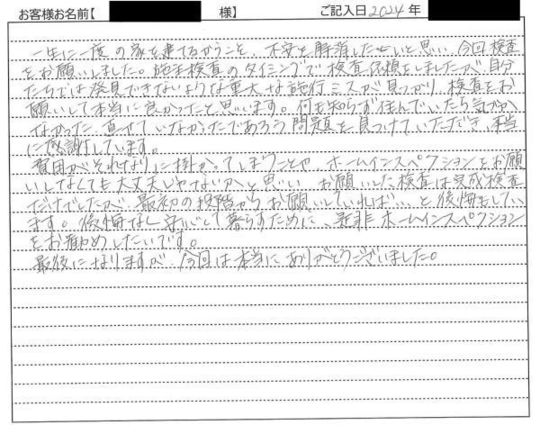 お客様お名前【 様】 ご記入日 2024年
一生に一度の家を建てるからこそ、不安を解消したいと思い、今回検査
をお願いしました。施主検査のタイミングで検査依頼をしましたが、自分
たちでは発見できないような重大な施行ミスが見つかり、検査をお
願いして本当に良かったと思います。何も知らず住んでいたら気がつか
なかった、直せていなかったであろう問題を見つけていただき、本当
に感謝しています。
費用がそれなりに掛かってしまうことや、ホームインスペクションをお願
いしなくても大丈夫じゃないかと思い、お願いした検査は完成検査
だけでしたが、最初の段階からお願いしていれば…と後悔をしてい
ます。後悔なく安心して暮らすために、是非ホームインスペクション
をお勧めしたいです。
最後になりますが、今回は本当にありがとうございました。